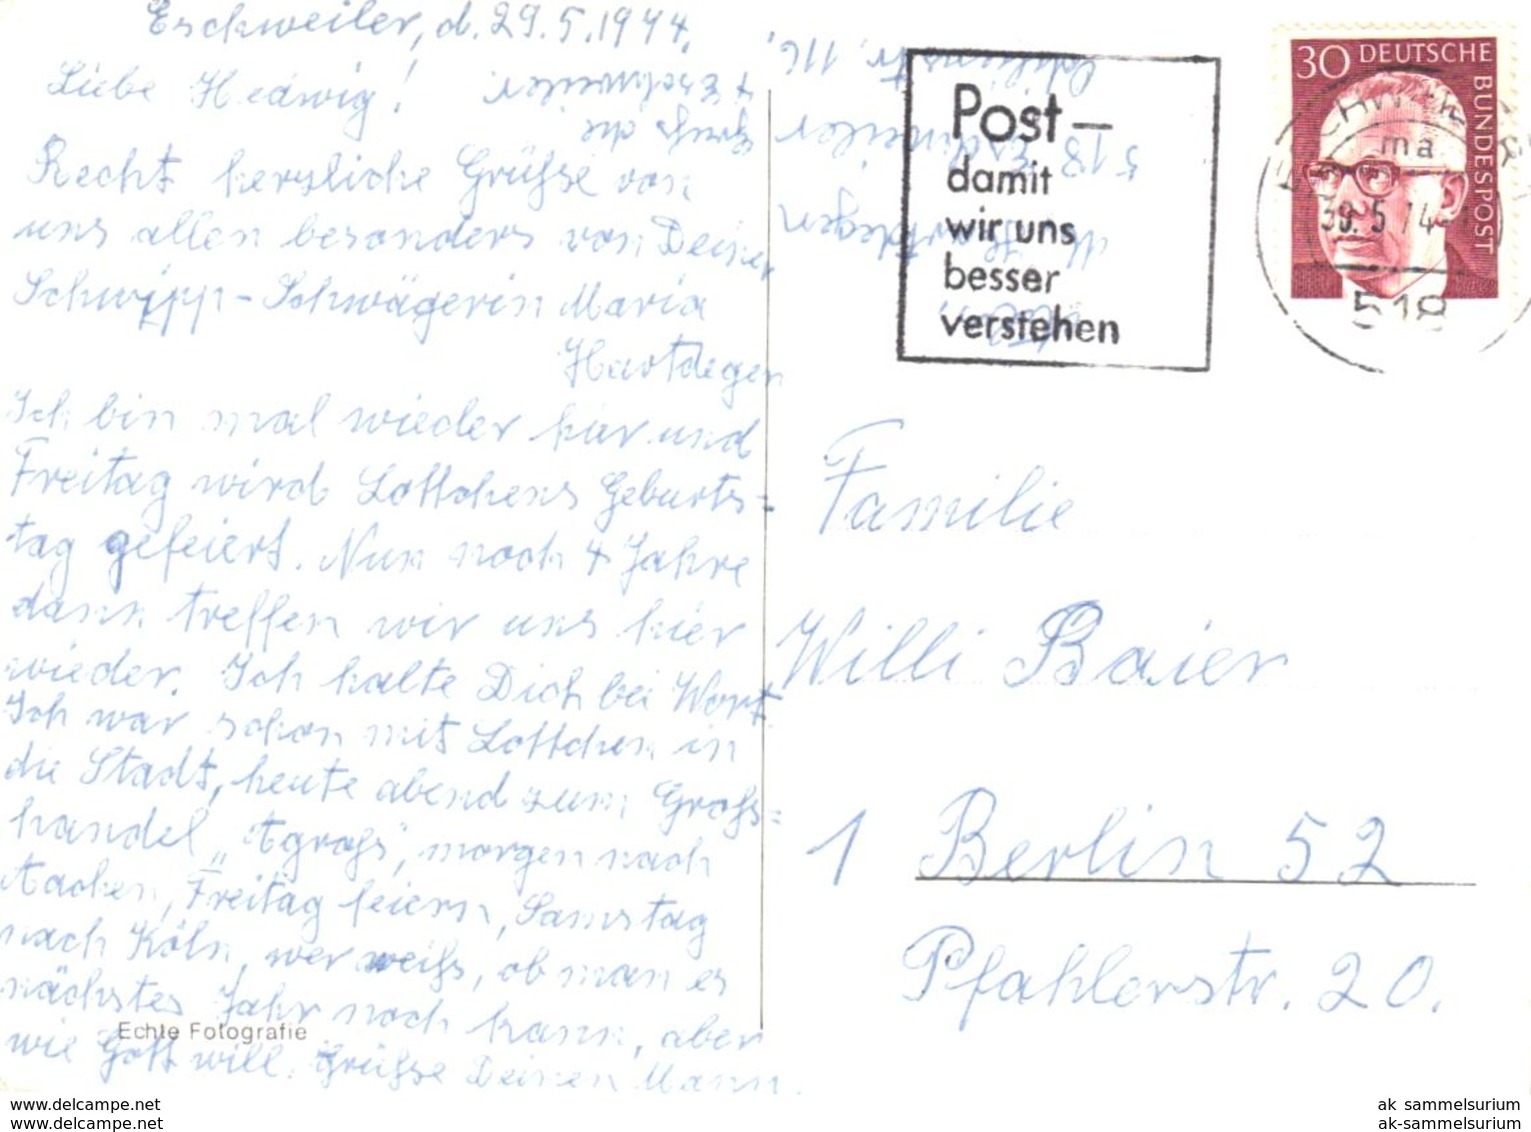 Eschweiler, d. 29.5.1974.
Liebe Hedwig!
Recht herzliche Grüße von
uns allen besonders von Deiner
Schwipp-Schwägerin Maria
Hartdegen
Ich bin mal wieder hier und
Freitag wird Lottchens Geburts=
tag gefeiert. Nun noch 4 Jahre
dann treffen wir uns hier
wieder. Ich halte Dich bei Wort
Ich war schon mit Lottchen in
die Stadt, heute abend zum Groß=
handel „Agroß", morgen nach
Aachen, Freitag feiern, Samstag
nach Köln, wer weiß, ob man es
nächstes Jahr noch kann, aber
wie Gott will. Grüße Deinen Mann.
Echte Fotografie
Hartdegen
518 Eschweiler
str. 116
Grüße die
Eschweiler
Post—
damit
wir uns
besser
verstehen
30 DEUTSCHE
BUNDESPOST
ESCHWEILER
ma
5.74
518
Familie
Willi Baier
1 Berlin 52
Pfahlerstr. 20.
www.delcampe.net
www.delcampe.net
ak_sammelsurium
ak-sammelsurium